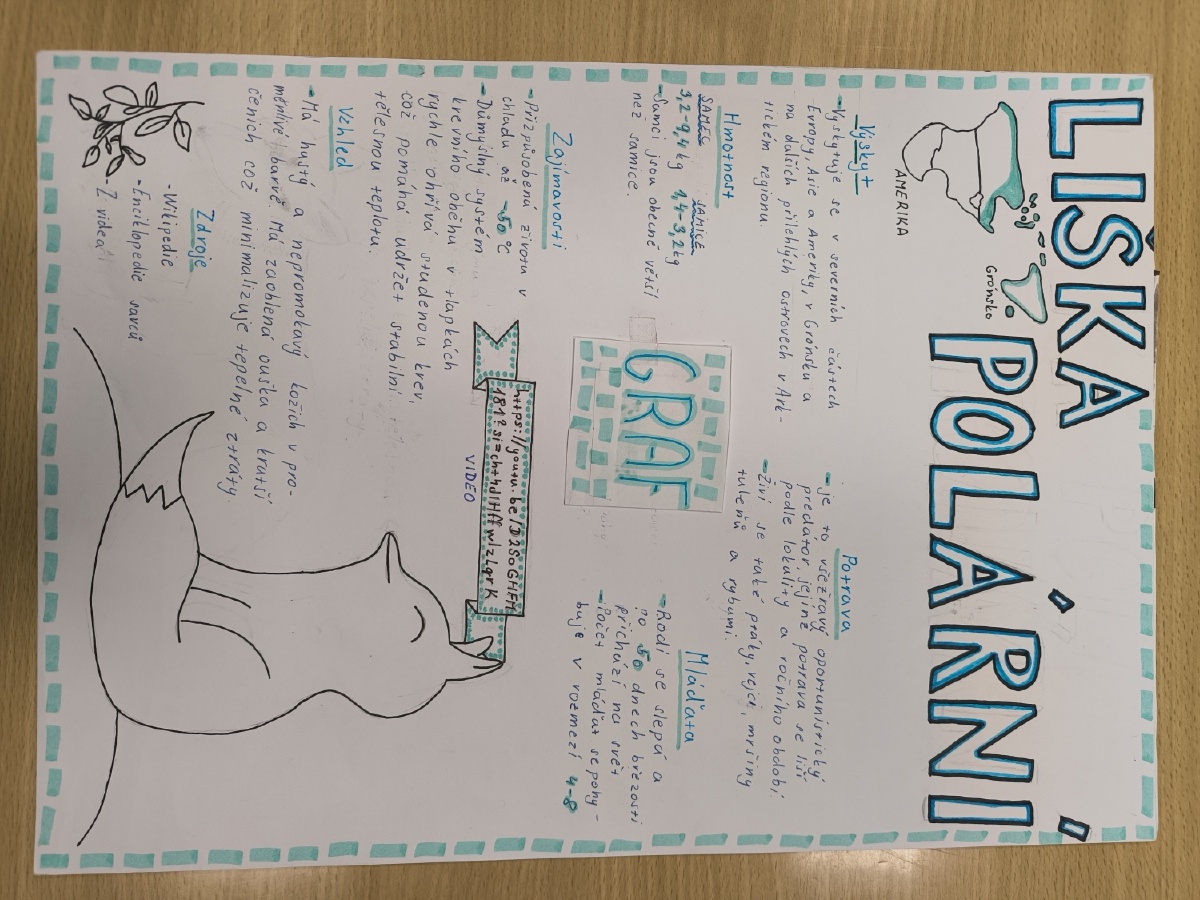 LIŠKA
POLÁRNÍ
AMERIKA
Grónsko
Výskyt
- Vyskytuje se v severních částech
Evropy, Asie a Ameriky, v Grónsku a
na dalších přilehlých ostrovech v Ark-
tickém regionu.
Hmotnost
SAMEC SAMICE
3,2-9,4kg 1,4-3,2kg
- Samci jsou obecně větší
než samice.
Potrava
- je to všežravý oportunistický
predátor, jejímž potrava se liší
podle lokality a ročního období
- Živí se také ptáky, vejci, mršiny
tuleňů a rybami.
GRAF
Mláďata
- Rodí se slepá a
po 50 dnech březosti
přichází na svět
- Počet mláďat se pohy-
buje v rozmezí 4-8
Zajímavosti
- Přizpůsobená životu v
chladu až -50 °C
- Důmyslný systém
krevního oběhu v tlapkách
rychle ohřívá studenou krev,
což pomáhá udržet stabilní
tělesnou teplotu.
https://youtu.be/D2SoGHFH
181?si=chthdlHffwlzLqrK
VIDEO
Vzhled
- Má hustý a nepromokavý kožich v pro-
měnlivé barvě. Má zaoblená ouška a kratší
čenich což minimalizuje tepelné ztráty.
Zdroje
- Wikipedie
- Enciklopedie savců
Z videa